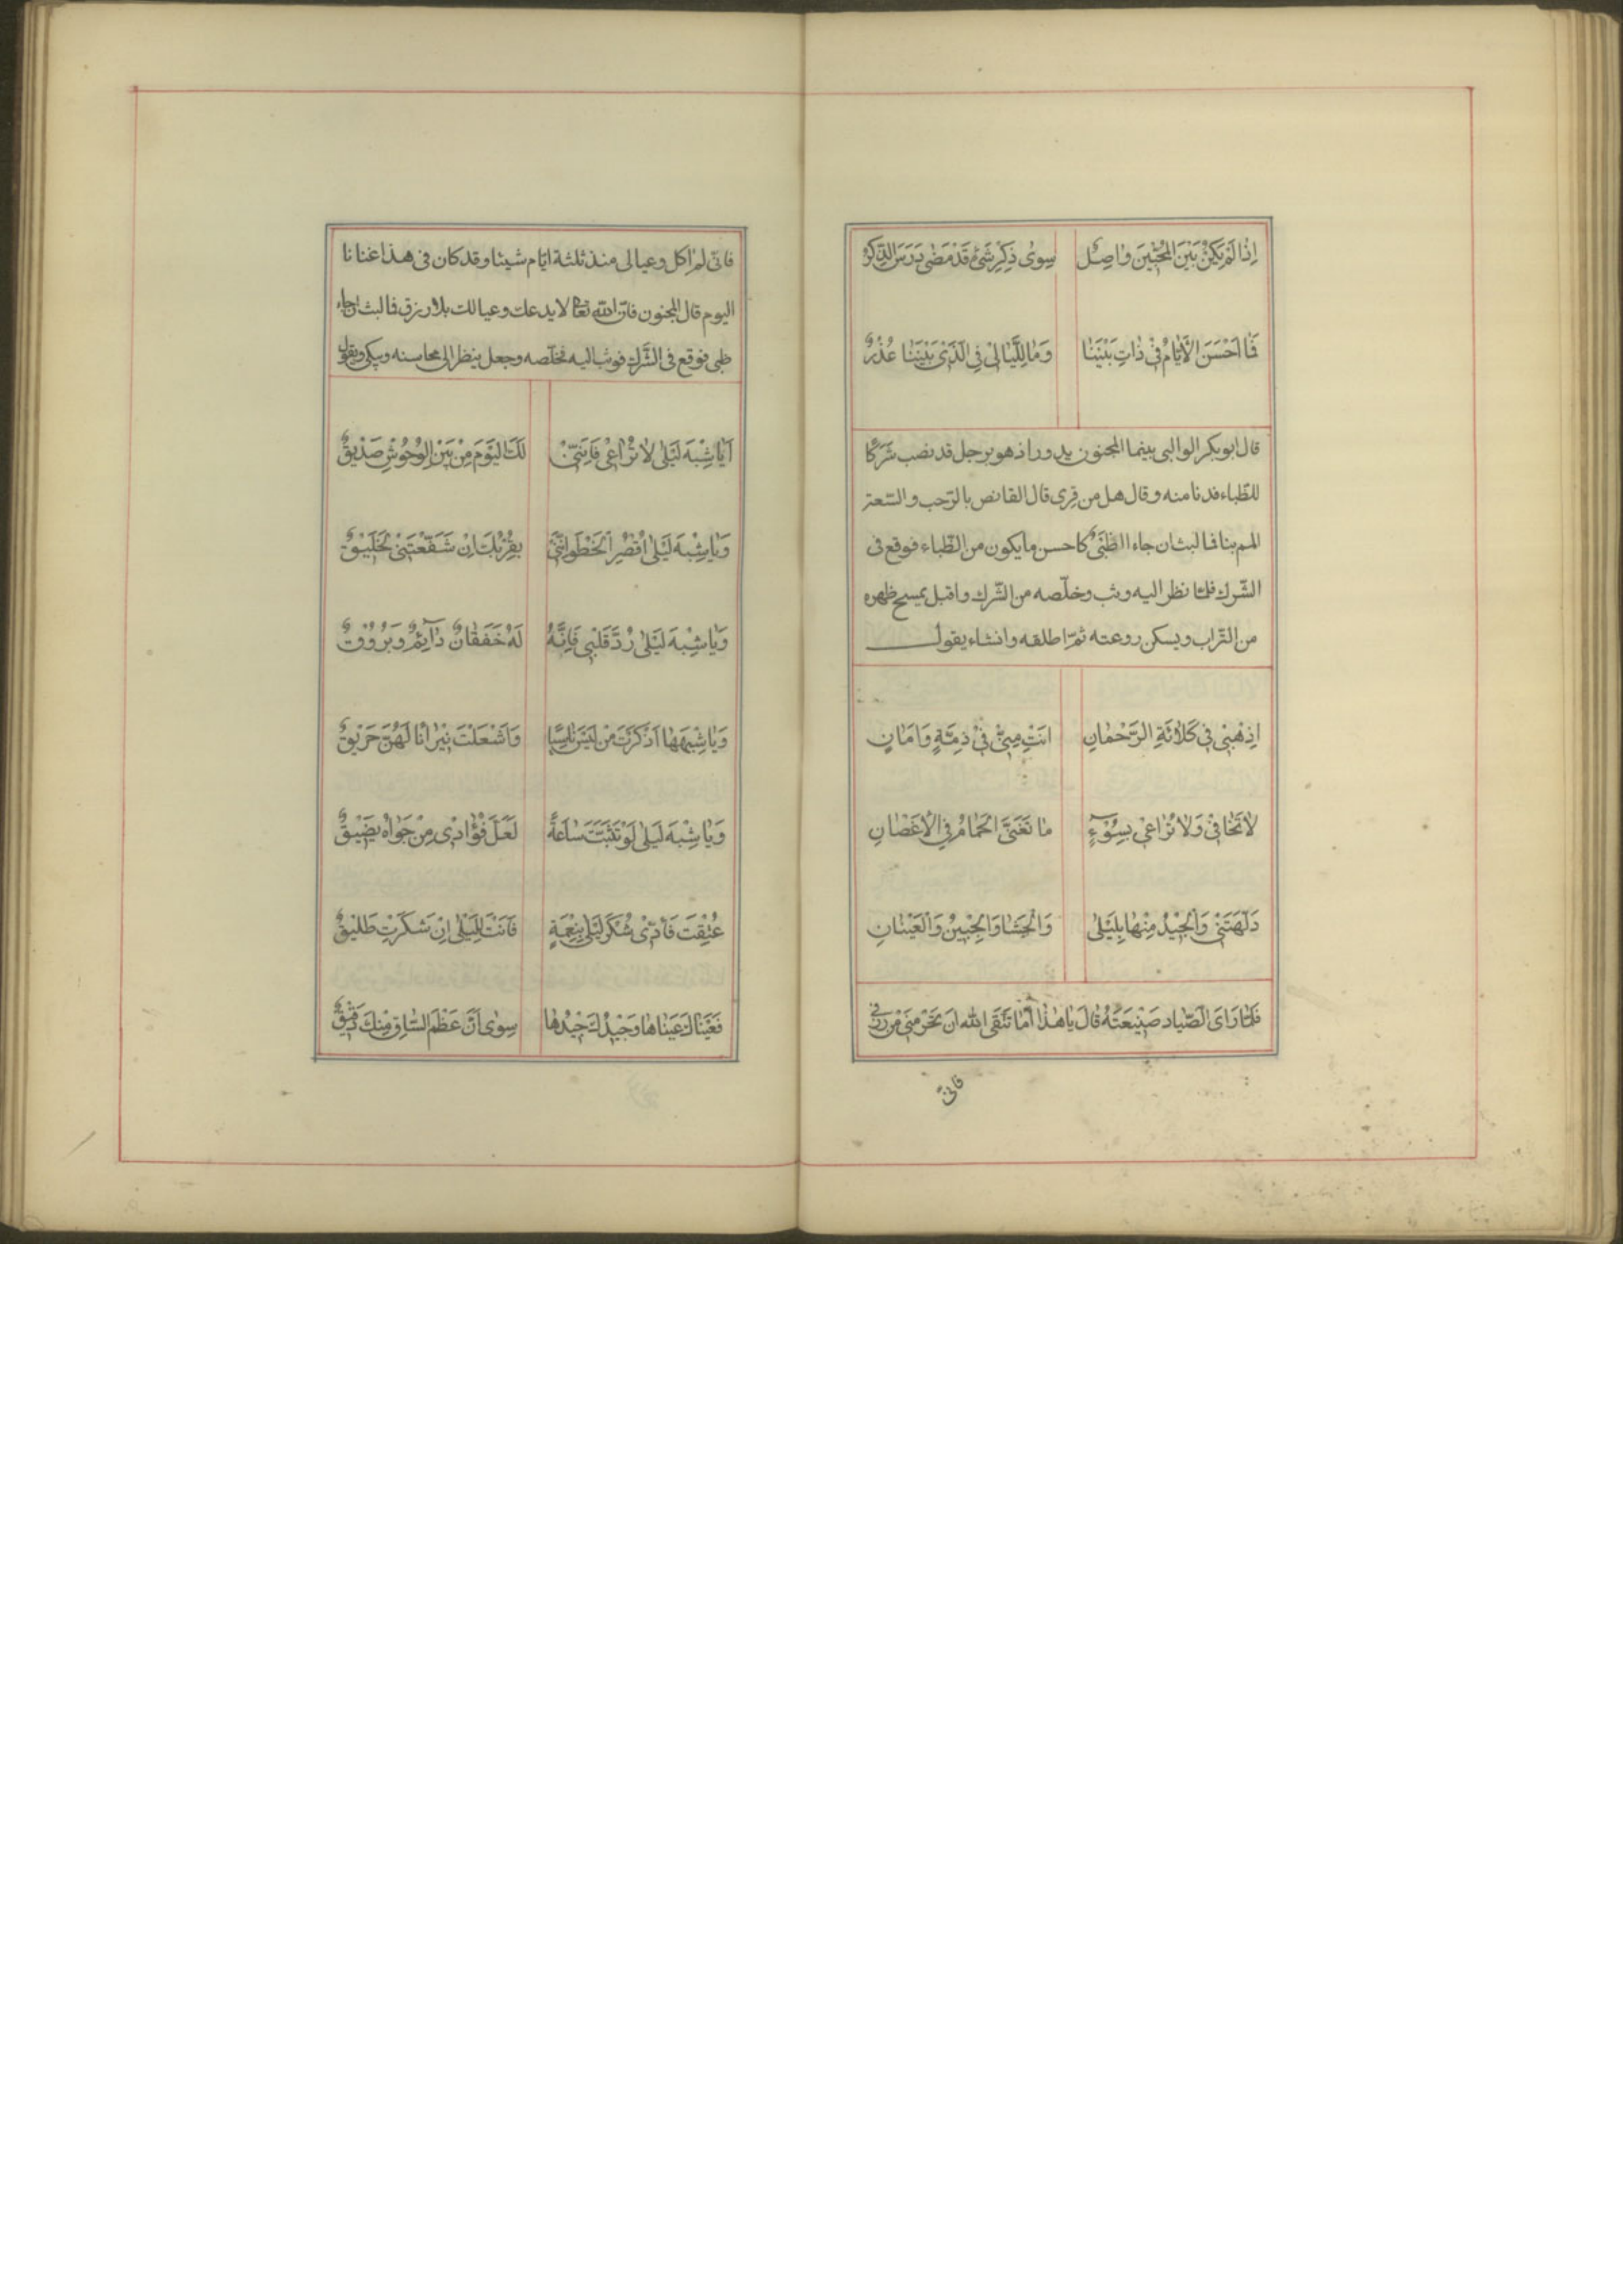 اِذٰا لَمْ يَكُنْ بَيْنَ الْمُحِبّينَ وٰاصِلٌ سِوٰى ذِكْرِ شَىْءٍ قَدْ مَضٰى دَرَسَ الذِّكْرُ
فَمٰا اَحْسَنَ الْاَيّٰامُ فى ذٰاتِ بَيْنَنٰا وَمٰا لِلَّيٰالى فِى الَّذى بَيْنَنٰا عُذْرٌ
قال ابو بكر الوالبى بينما المجنون يدور اذ هو برجل قد نصب شَرَكًا
للظباء فدنا منه وقال هل من قِرى قال القانص بالرّحب والسّعة
المم بنا فما لبث ان جاء الظَّبْىُ كاحسن ما يكون من الظّباء فوقع فى
الشّرك فلمّا نظر اليه وثب وخلّصه من الشّرك واقبل يمسح ظهره
من التّراب ويسكن روعته ثمّ اطلقه وانشاء يقول
اِذْهَبى فى كَلٰائَةِ الرَّحْمٰانِ انْتِ مِنّى فى ذِمَّةٍ وَاَمٰانٍ
لٰا تَخٰافى وَلٰا تُرٰاعى بِسُوۤءٍ مٰا تَغَنَّى الْحَمٰامُ فِى الْاَغْصٰانِ
دَلَّهَتْنى وَالْجيدُ مِنْهٰا بِلَيْلٰى وَالْحَشٰا وَالْجَبينُ وَالْعَيْنٰانِ
فَلَمّٰا رَاَى الصَّيّاد صَنيعَتَهُ قالَ يٰا هٰذٰا اَمٰا تَتَّقى الله ان تحرمنى من رزق
فانّى
فانّى لم اكل وعيالى منذ ثلثة ايّام شيئا وقد كان فى هذا غنانا
اليوم قال المجنون فانّ اللّه تعا لا يدعك وعيالك بلا رزق فما لبث ان جاء
ظبى فوقع فى الشّرك فوثب اليه فخلّصه وجعل ينظر الى محاسنه ويبكى ويقول
اَيٰا شِبْهَ لَيْلٰى لٰا تُرٰاعى فَاِنَّنى لَكَ الْيَوْمَ مِنْ بَيْنِ الْوُحُوشِ صَديقٌ
وَيٰا شِبْهَ لَيْلٰى اَقْصِرِ الْخَطْوَ اِنَّنى بِقُرْبِكَ اِنْ شَفَّعْتَنى لَخَليقٌ
وَيٰا شِبْهَ لَيْلٰى رُدَّ قَلْبى فَاِنَّهُ لَهُ خَفَقٰانٌ دٰاۤئِمٌ وَبُرُوقٌ
وَيٰا شِبْهَهٰا اَذْكَرْتَ مَنْ لَيْسَ نٰاسِيًا وَاَشْعَلْتَ نيرٰانًا لَهُنَّ حَريقٌ
وَيٰا شِبْهَ لَيْلٰى لَوْ تَثَبَّتَّ سٰاعَةً لَعَلَّ فُؤٰادى مِنْ جَوٰاهُ يَضيقٌ
عُتِقْتَ فَاَدّى شُكْرَ لَيْلٰى بِنِعْمَةٍ فَاَنْتَ لِلَيْلٰى اِنْ شَكَرْتِ طَليقٌ
فَعَيْنٰاكِ عَيْنٰاهٰا وَجيدُكَ جيدُهٰا سِوٰى اَنَّ عَظْمَ السّٰاقِ مِنْكَ دَقيقٌ